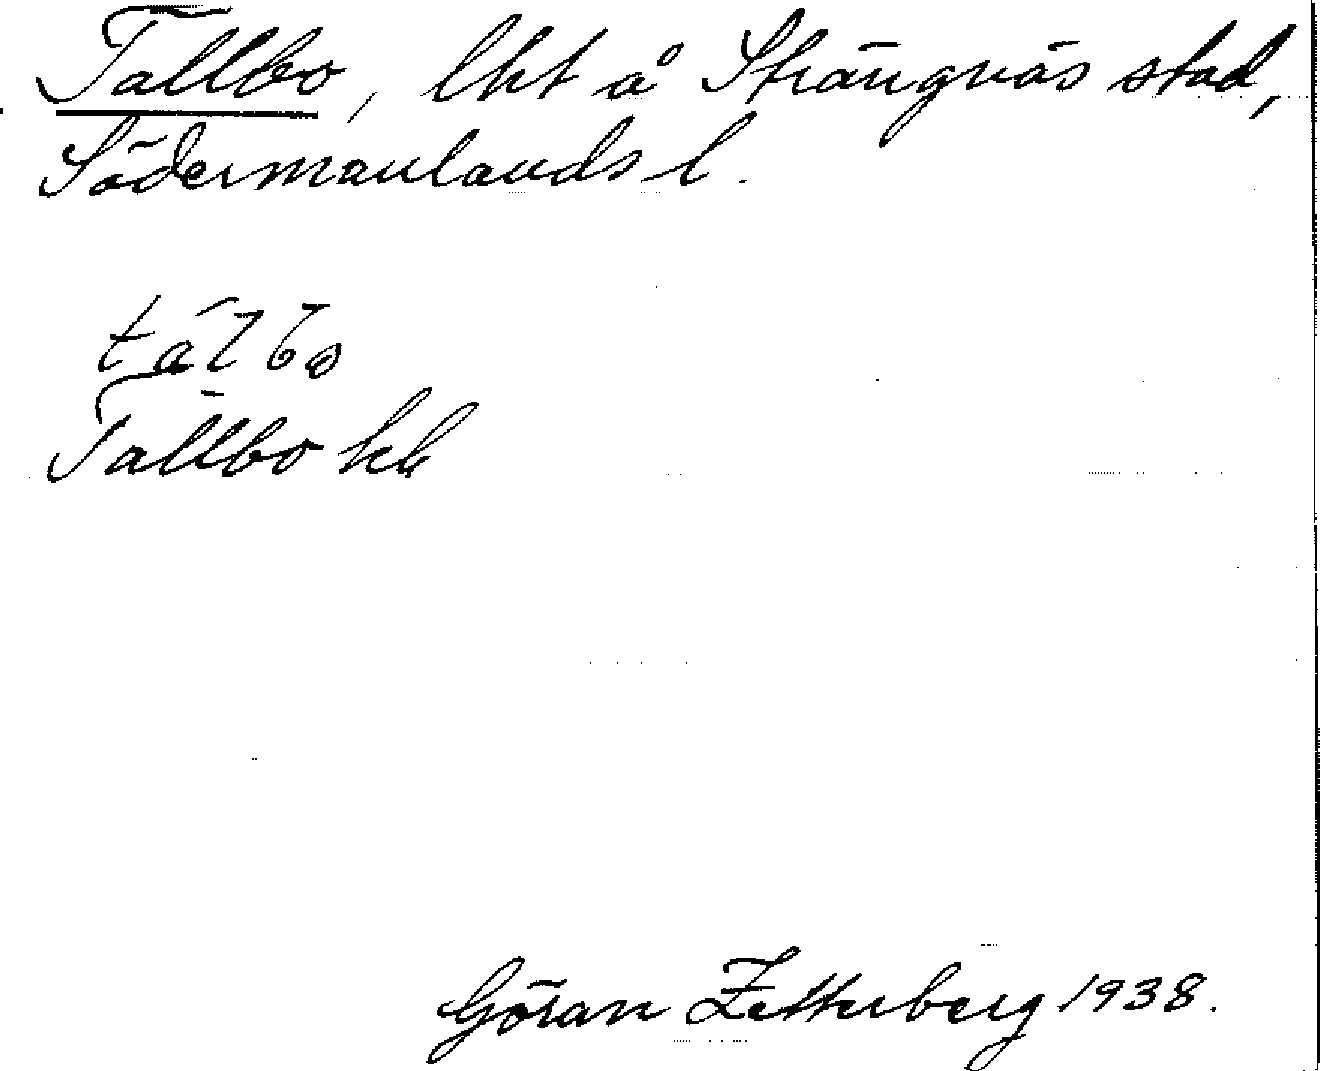 Tallbo, lht å Strängnäs stad,
Södermanlands l.
Tallbo kk
Göran Zetterberg 1938.